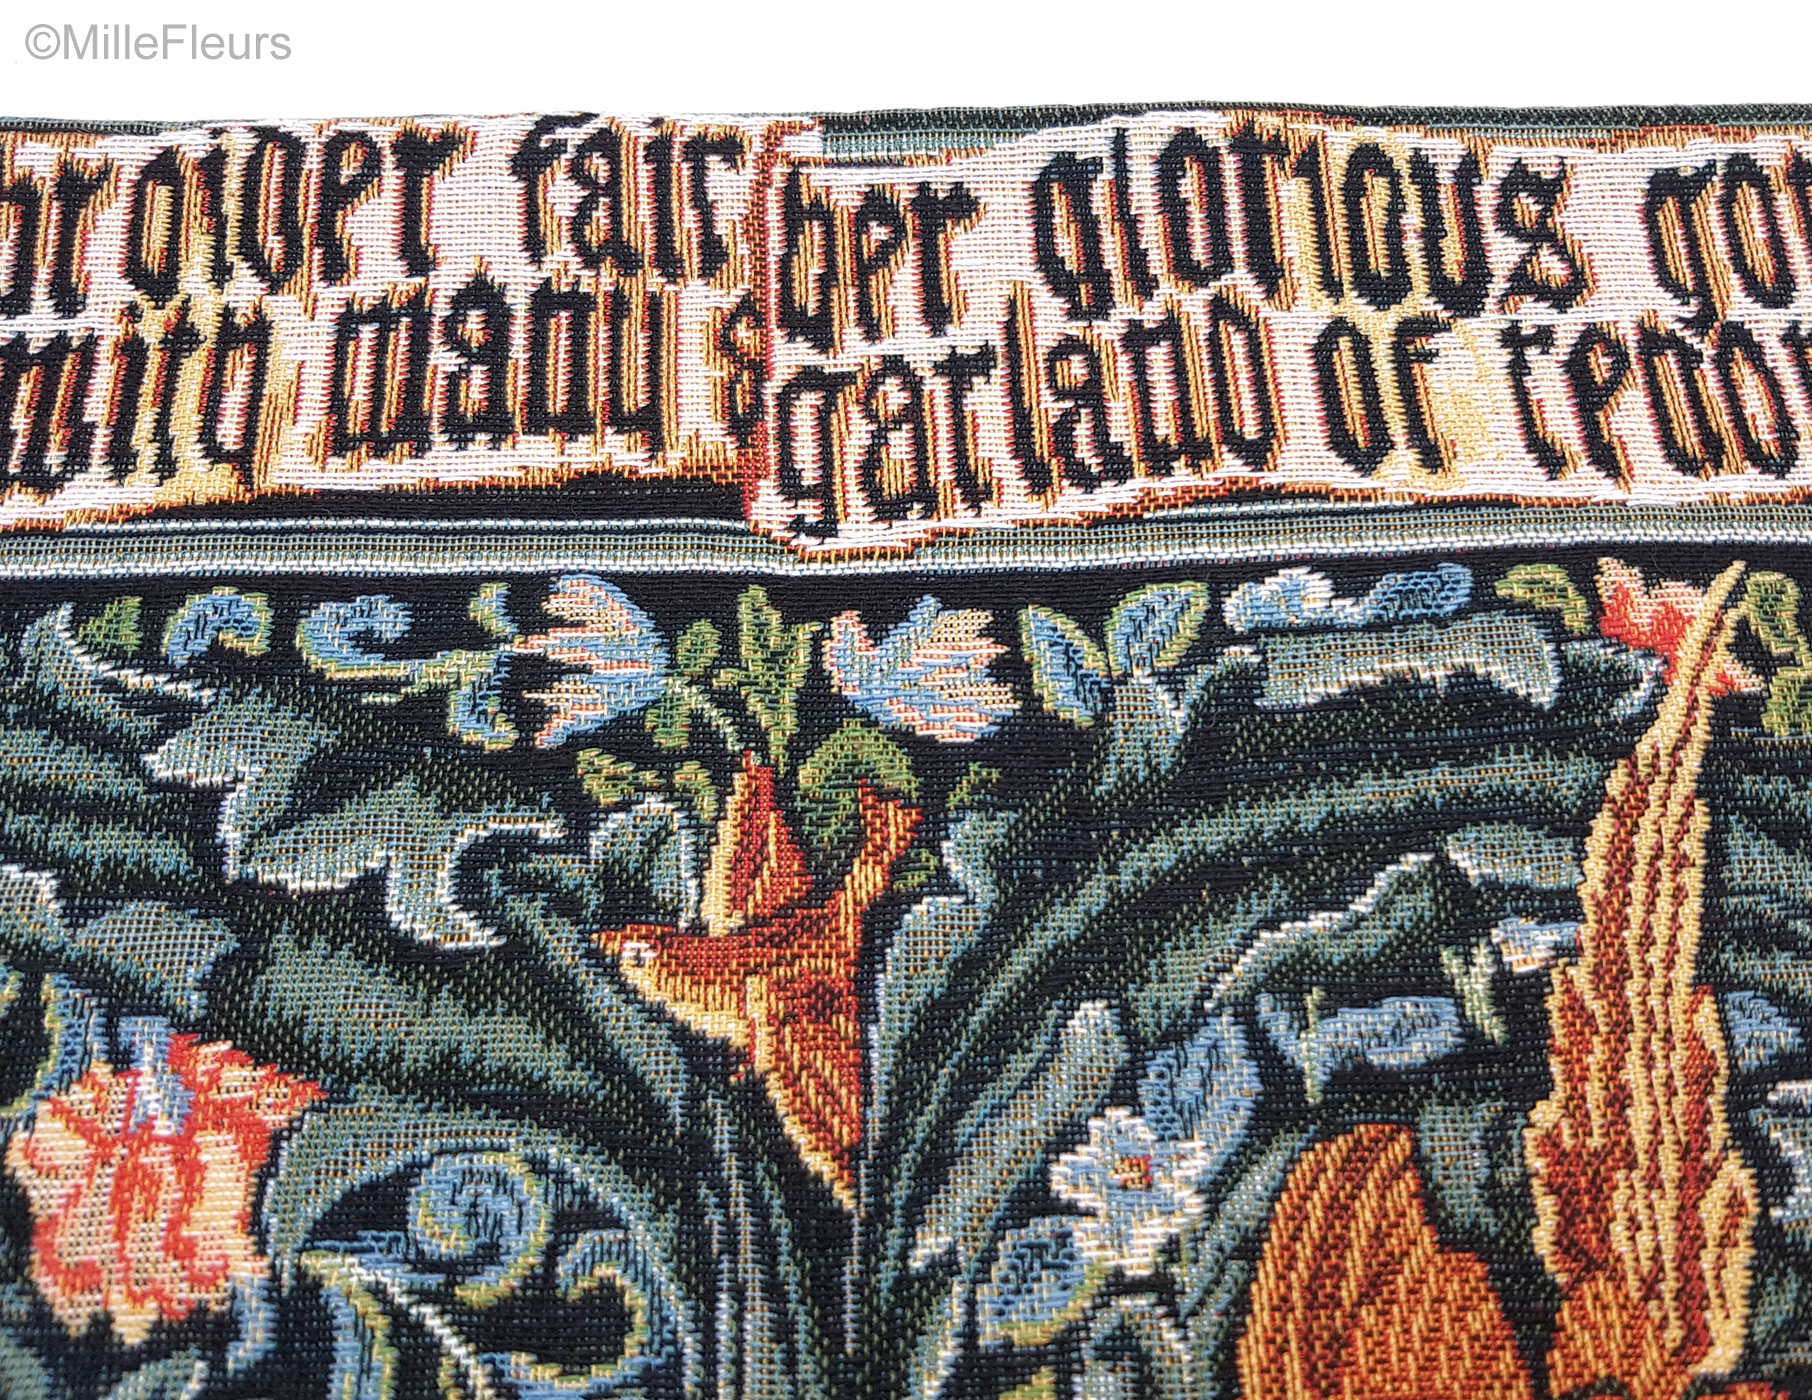 ©MilleFleurs
broider fair her glorious gow
with many a garland of reno